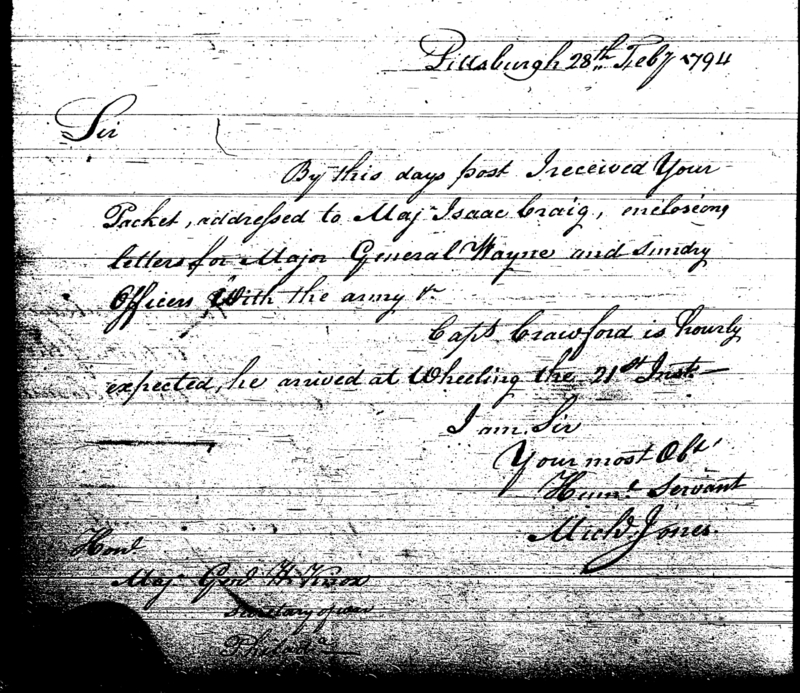 Pittsburgh 28th Feby 1794
Sir
By this days post I received Your
Packet, addressed to Maj. Isaac Craig, encloseing
letters for Major General Wayne and sundry
Officers With the army &c
Capt Crawford is hourly
expected, he arrived at Wheeling the 21st Inst.—
I am Sir
Your most Obt
Huml Servant
Michl. Jones.
Honl
Maj. Genl H. Knox
Secretary of war
Philada